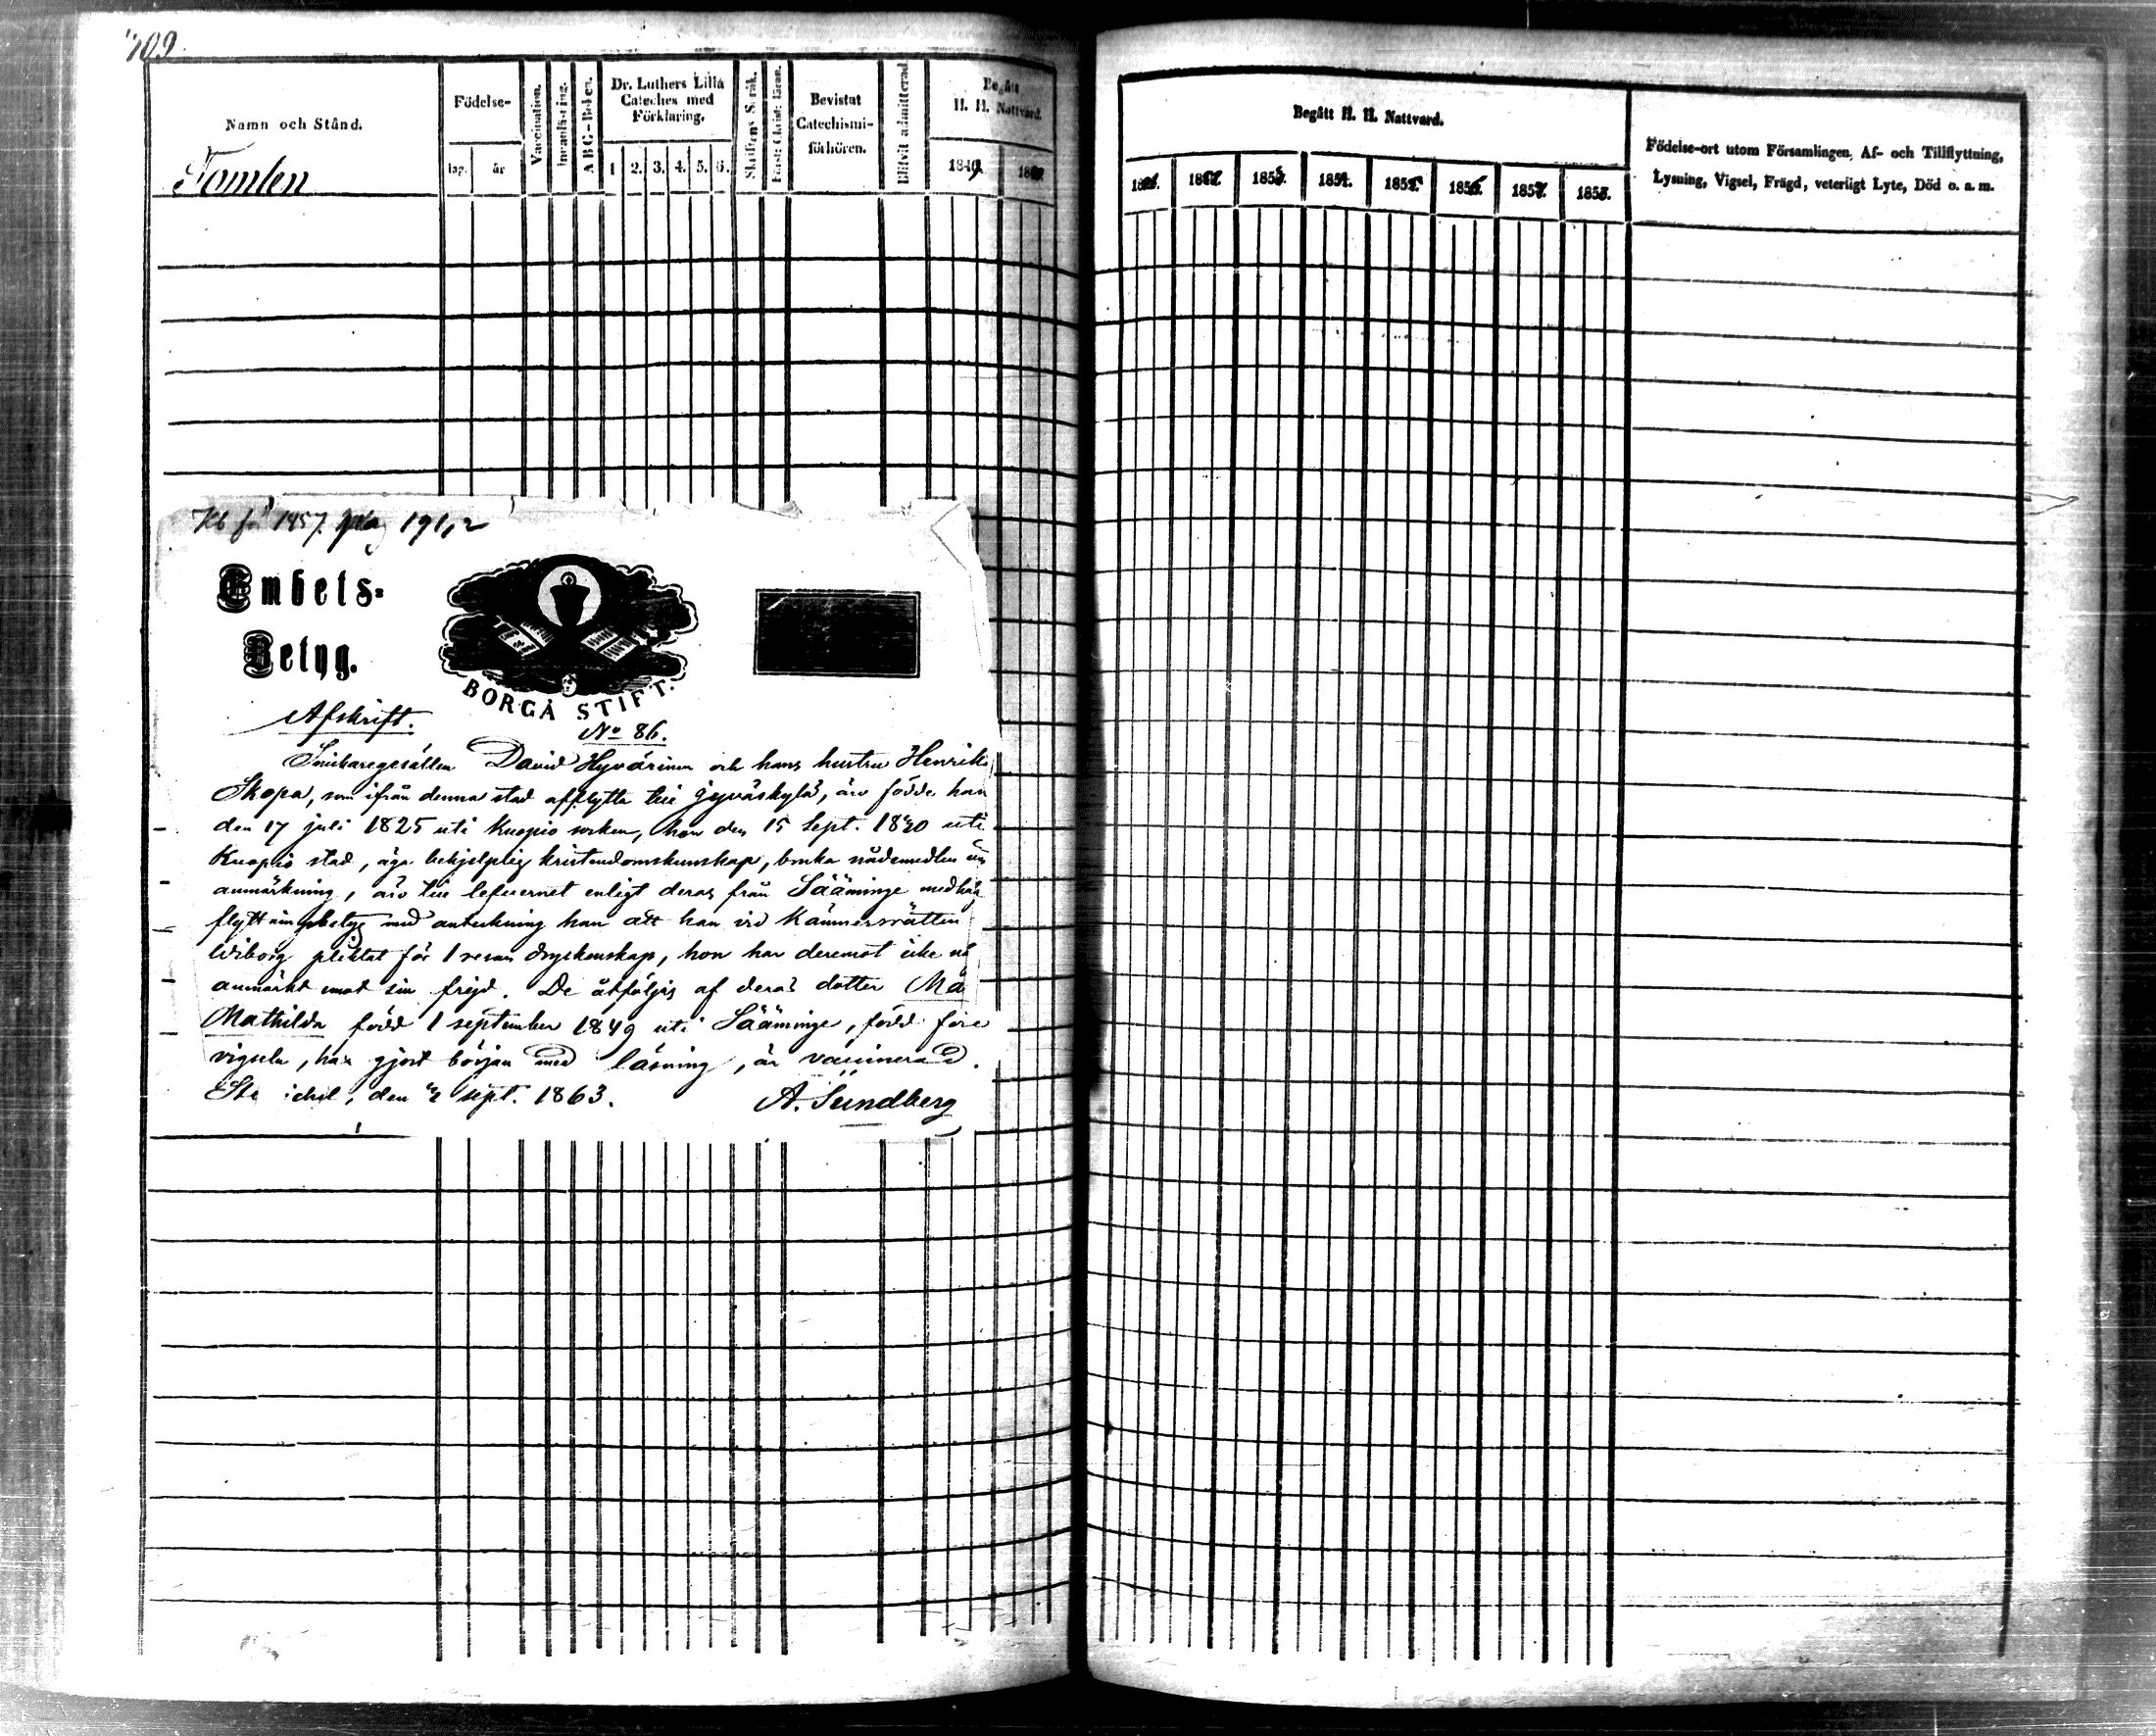 709
Namn och Stånd.
Tomlen
Födelse-
dag. år
Vaccination.
Innanläsning.
ABC-Boken.
Dr. Luthers Lilla
Cateches med
Förklaring.
1 2. 3. 4. 5. 6.
Skriftens Språk.
Bevistat
Catechismi-
förhören.
Blifvit admitterad.
Begått
H. H. Nattvard.
1849.
Begått H. H. Nattvard.
1852. 1853. 1854. 1855. 1856. 1857. 1858.
Födelse-ort utom Församlingen, Af- och Tillflyttning,
Lysning, Vigsel, Frägd, veterligt Lyte, Död o. a. m.
1857. pag 191,2
Embets-
Betyg.
BORGÅ STIFT.
Afskrift.
No 86.
Snickaregesällen David Hyvärinen och hans hustru Henrik
Skopa, som ifrån denna stad afflytta till Jyväskylä, äro födde han
den 17 juli 1825 uti Kuopio socken, hon den 15 Sept. 1820 uti
Kuopio stad, äga behjelplig kristendomskunskap, bruka nådemedlen
anmärkning, äro till lefvernet enligt deras från Sääminge medha
flyttningsbetyg med anteckning han att han vid Kämnersrätten
Wiborg pliktat för 1 resan dryckenskap, hon har deremot icke nå
anmärkt emot sin frejd. De åtföljas af deras dotter Ma
Mathilda född 1 september 1849 uti Sääminge, född före
vigseln, har gjort början med läsning, är vaccinerad.
St ichel, den sept. 1863. A. Sundberg